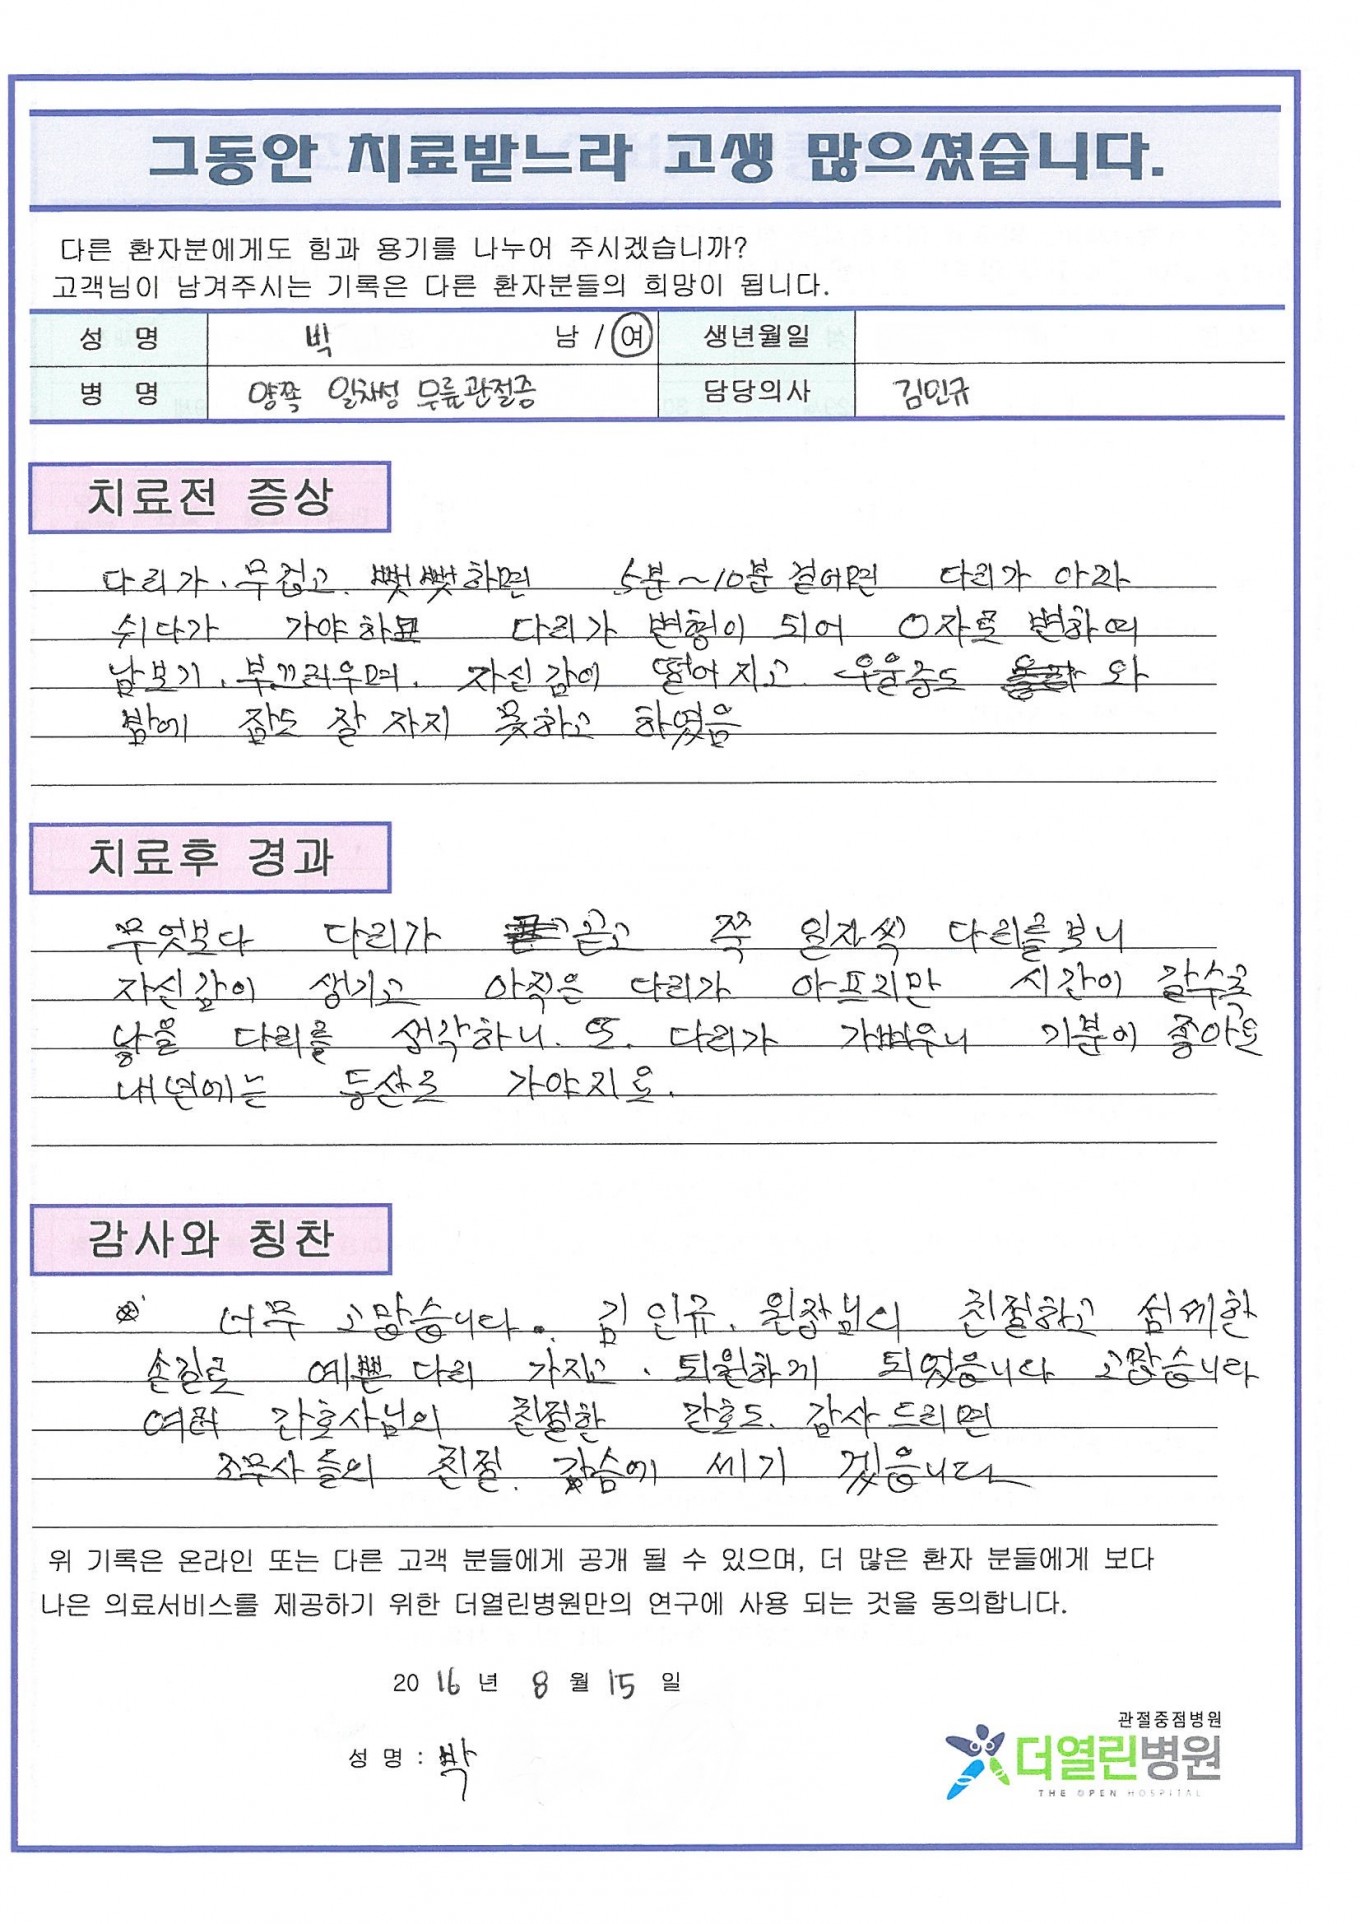 그동안 치료받느라 고생 많으셨습니다.
다른 환자분에게도 힘과 용기를 나누어 주시겠습니까?
고객님이 남겨주시는 기록은 다른 환자분들의 희망이 됩니다.
성 명 박 남 / 여 생년월일
병 명 양쪽 일차성 무릎관절증 담당의사 김민규
치료전 증상
다리가. 무겁고. 뻣뻣하면 5분~10분 걸어면 다리가 아라
쉬다가 가야하고 다리가 변형이 되어 O자로 변하여
남보기. 부끄러우며. 자신감이 떨어지고. 우울증도 와
밤에 잠도 잘 자지 못하고 하였음
치료후 경과
무엇보다 다리가 곧고 쭉 일자씩 다리를 보니
자신감이 생기고 아직은 다리가 아프지만 시간이 갈수록
낳을 다리를 생각하니. 또. 다리가 가벼우니 기분이 좋아요
내년에는 등산로 가야지요.
감사와 칭찬
너무 고맙습니다. 김인규. 원장님의 친절하고 섬세한
손길로 예쁜 다리 가지고. 퇴원하게 되었습니다 고맙습니다
여러 간호사님의 친절한 간호도. 감사드리면
조무사들의 친절. 갑슴에 세기 겠습니다
위 기록은 온라인 또는 다른 고객 분들에게 공개 될 수 있으며, 더 많은 환자 분들에게 보다
나은 의료서비스를 제공하기 위한 더열린병원만의 연구에 사용 되는 것을 동의합니다.
2016 년 8 월 15 일
성 명 : 박
관절중점병원
더열린병원
THE OPEN HOSPITAL